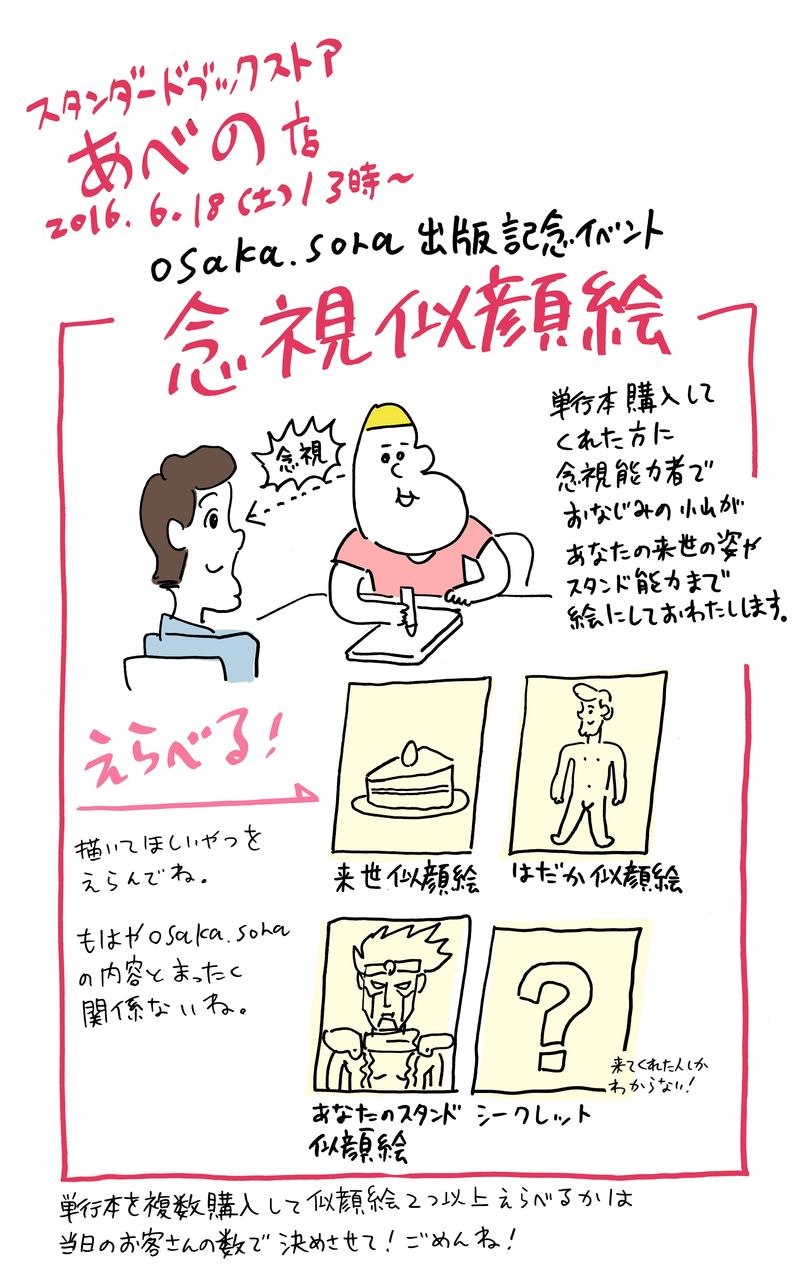 スタンダードブックストア
あべの店
2016.6.18(土)13時〜
osaka.sora 出版記念イベント
念視似顔絵
念視
単行本購入して
くれた方に
念視能力者で
おなじみの小山が
あなたの来世の姿や
スタンド能力まで
絵にしておわたしします。
えらべる!
描いてほしいやつを
えらんでね。
もはやosaka.sora
の内容とまったく
関係ないね。
来世似顔絵
はだか似顔絵
あなたのスタンド
似顔絵
シークレット
来てくれた人しか
わからない!
単行本を複数購入して似顔絵2つ以上えらべるかは
当日のお客さんの数で決めさせて!ごめんね!